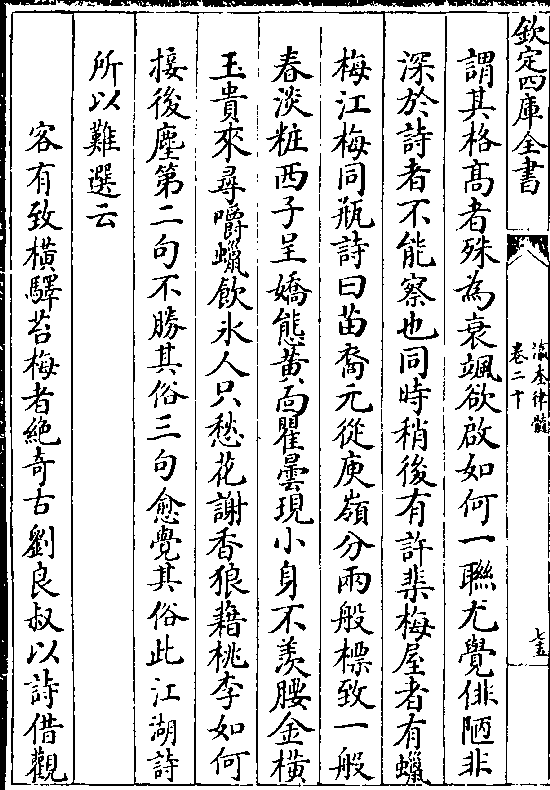 欽定四庫全書
瀛奎律髓
卷二十
七五
謂其格髙者殊為衰颯欲啟如何一聯尤覺俳陋非
深於詩者不能察也同時稍後有許棐梅屋者有蠟
梅江梅同瓶詩曰苗裔元從庾嶺分兩般標致一般
春淡粧西子呈嬌態黄面瞿曇現小身不羨腰金横
玉貴來尋嚼蠟飲氷人只愁花謝香狼藉桃李如何
接後塵第二句不勝其俗三句愈覺其俗此江湖詩
所以難選云
客有致横驛苔梅者絶奇古劉良叔以詩借觀